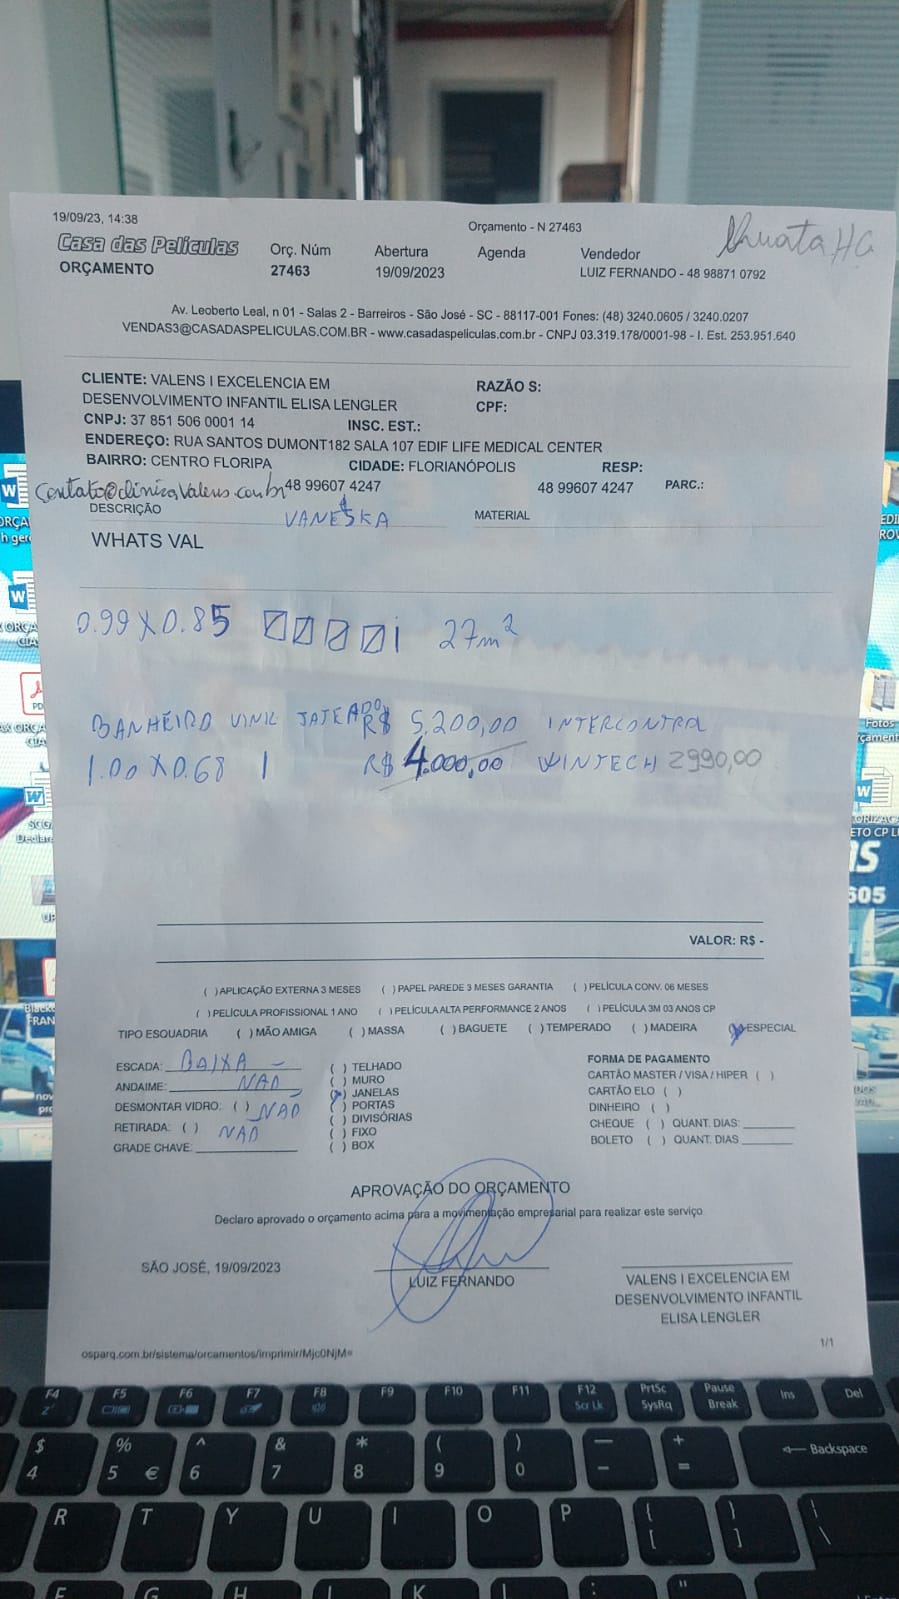 19/09/23, 14:38
Orçamento - N 27463
Casa das Películas
ORÇAMENTO
Orç. Núm Abertura Agenda Vendedor
27463 19/09/2023 LUIZ FERNANDO - 48 98871 0792
Av. Leoberto Leal, n 01 - Salas 2 - Barreiros - São José - SC - 88117-001 Fones: (48) 3240.0605 / 3240.0207
VENDAS3@CASADASPELICULAS.COM.BR - www.casadaspeliculas.com.br - CNPJ 03.319.178/0001-98 - I. Est. 253.951.640
CLIENTE: VALENS I EXCELENCIA EM RAZÃO S:
DESENVOLVIMENTO INFANTIL ELISA LENGLER CPF:
CNPJ: 37 851 506 0001 14 INSC. EST.:
ENDEREÇO: RUA SANTOS DUMONT182 SALA 107 EDIF LIFE MEDICAL CENTER
BAIRRO: CENTRO FLORIPA CIDADE: FLORIANÓPOLIS RESP:
Contato@clinicaValens.com.br 48 99607 4247 48 99607 4247 PARC.:
DESCRIÇÃO VANESKA MATERIAL
WHATS VAL
0.99 X 0.85 27m²
BANHEIRO VINIL JATEADO R$ 5.200,00 INTERCONTROL
1.00 X 0.68 1 R$ 4.000,00 WINTECH 2990,00
VALOR: R$ -
( )APLICAÇÃO EXTERNA 3 MESES ( )PAPEL PAREDE 3 MESES GARANTIA ( )PELÍCULA CONV. 06 MESES
( )PELÍCULA PROFISSIONAL 1 ANO ( )PELÍCULA ALTA PERFORMANCE 2 ANOS ( )PELÍCULA 3M 03 ANOS CP
TIPO ESQUADRIA ( )MÃO AMIGA ( )MASSA ( )BAGUETE ( )TEMPERADO ( )MADEIRA (X)ESPECIAL
ESCADA: BAIXA -
ANDAIME: NAO
DESMONTAR VIDRO: ( ) NÃO
RETIRADA: ( ) NAO
GRADE CHAVE:
( ) TELHADO
( ) MURO
(X) JANELAS
( ) PORTAS
( ) DIVISÓRIAS
( ) FIXO
( ) BOX
FORMA DE PAGAMENTO
CARTÃO MASTER / VISA / HIPER ( )
CARTÃO ELO ( )
DINHEIRO ( )
CHEQUE ( ) QUANT. DIAS:
BOLETO ( ) QUANT. DIAS
APROVAÇÃO DO ORÇAMENTO
Declaro aprovado o orçamento acima para a movimentação empresarial para realizar este serviço
SÃO JOSÉ, 19/09/2023
LUIZ FERNANDO
VALENS I EXCELENCIA EM
DESENVOLVIMENTO INFANTIL
ELISA LENGLER
1/1
osparq.com.br/sistema/orcamentos/imprimir/Mjc0NjM=
F4 F5 F6 F7 F8 F9 F10 F11 F12 PrtSc Pause Ins Del
Scr Lk SysRq Break
$ % ^ & * ( ) — + Backspace
4 5 € 6 7 8 9 0 - =
R T Y U I O P { } |
[ ] \